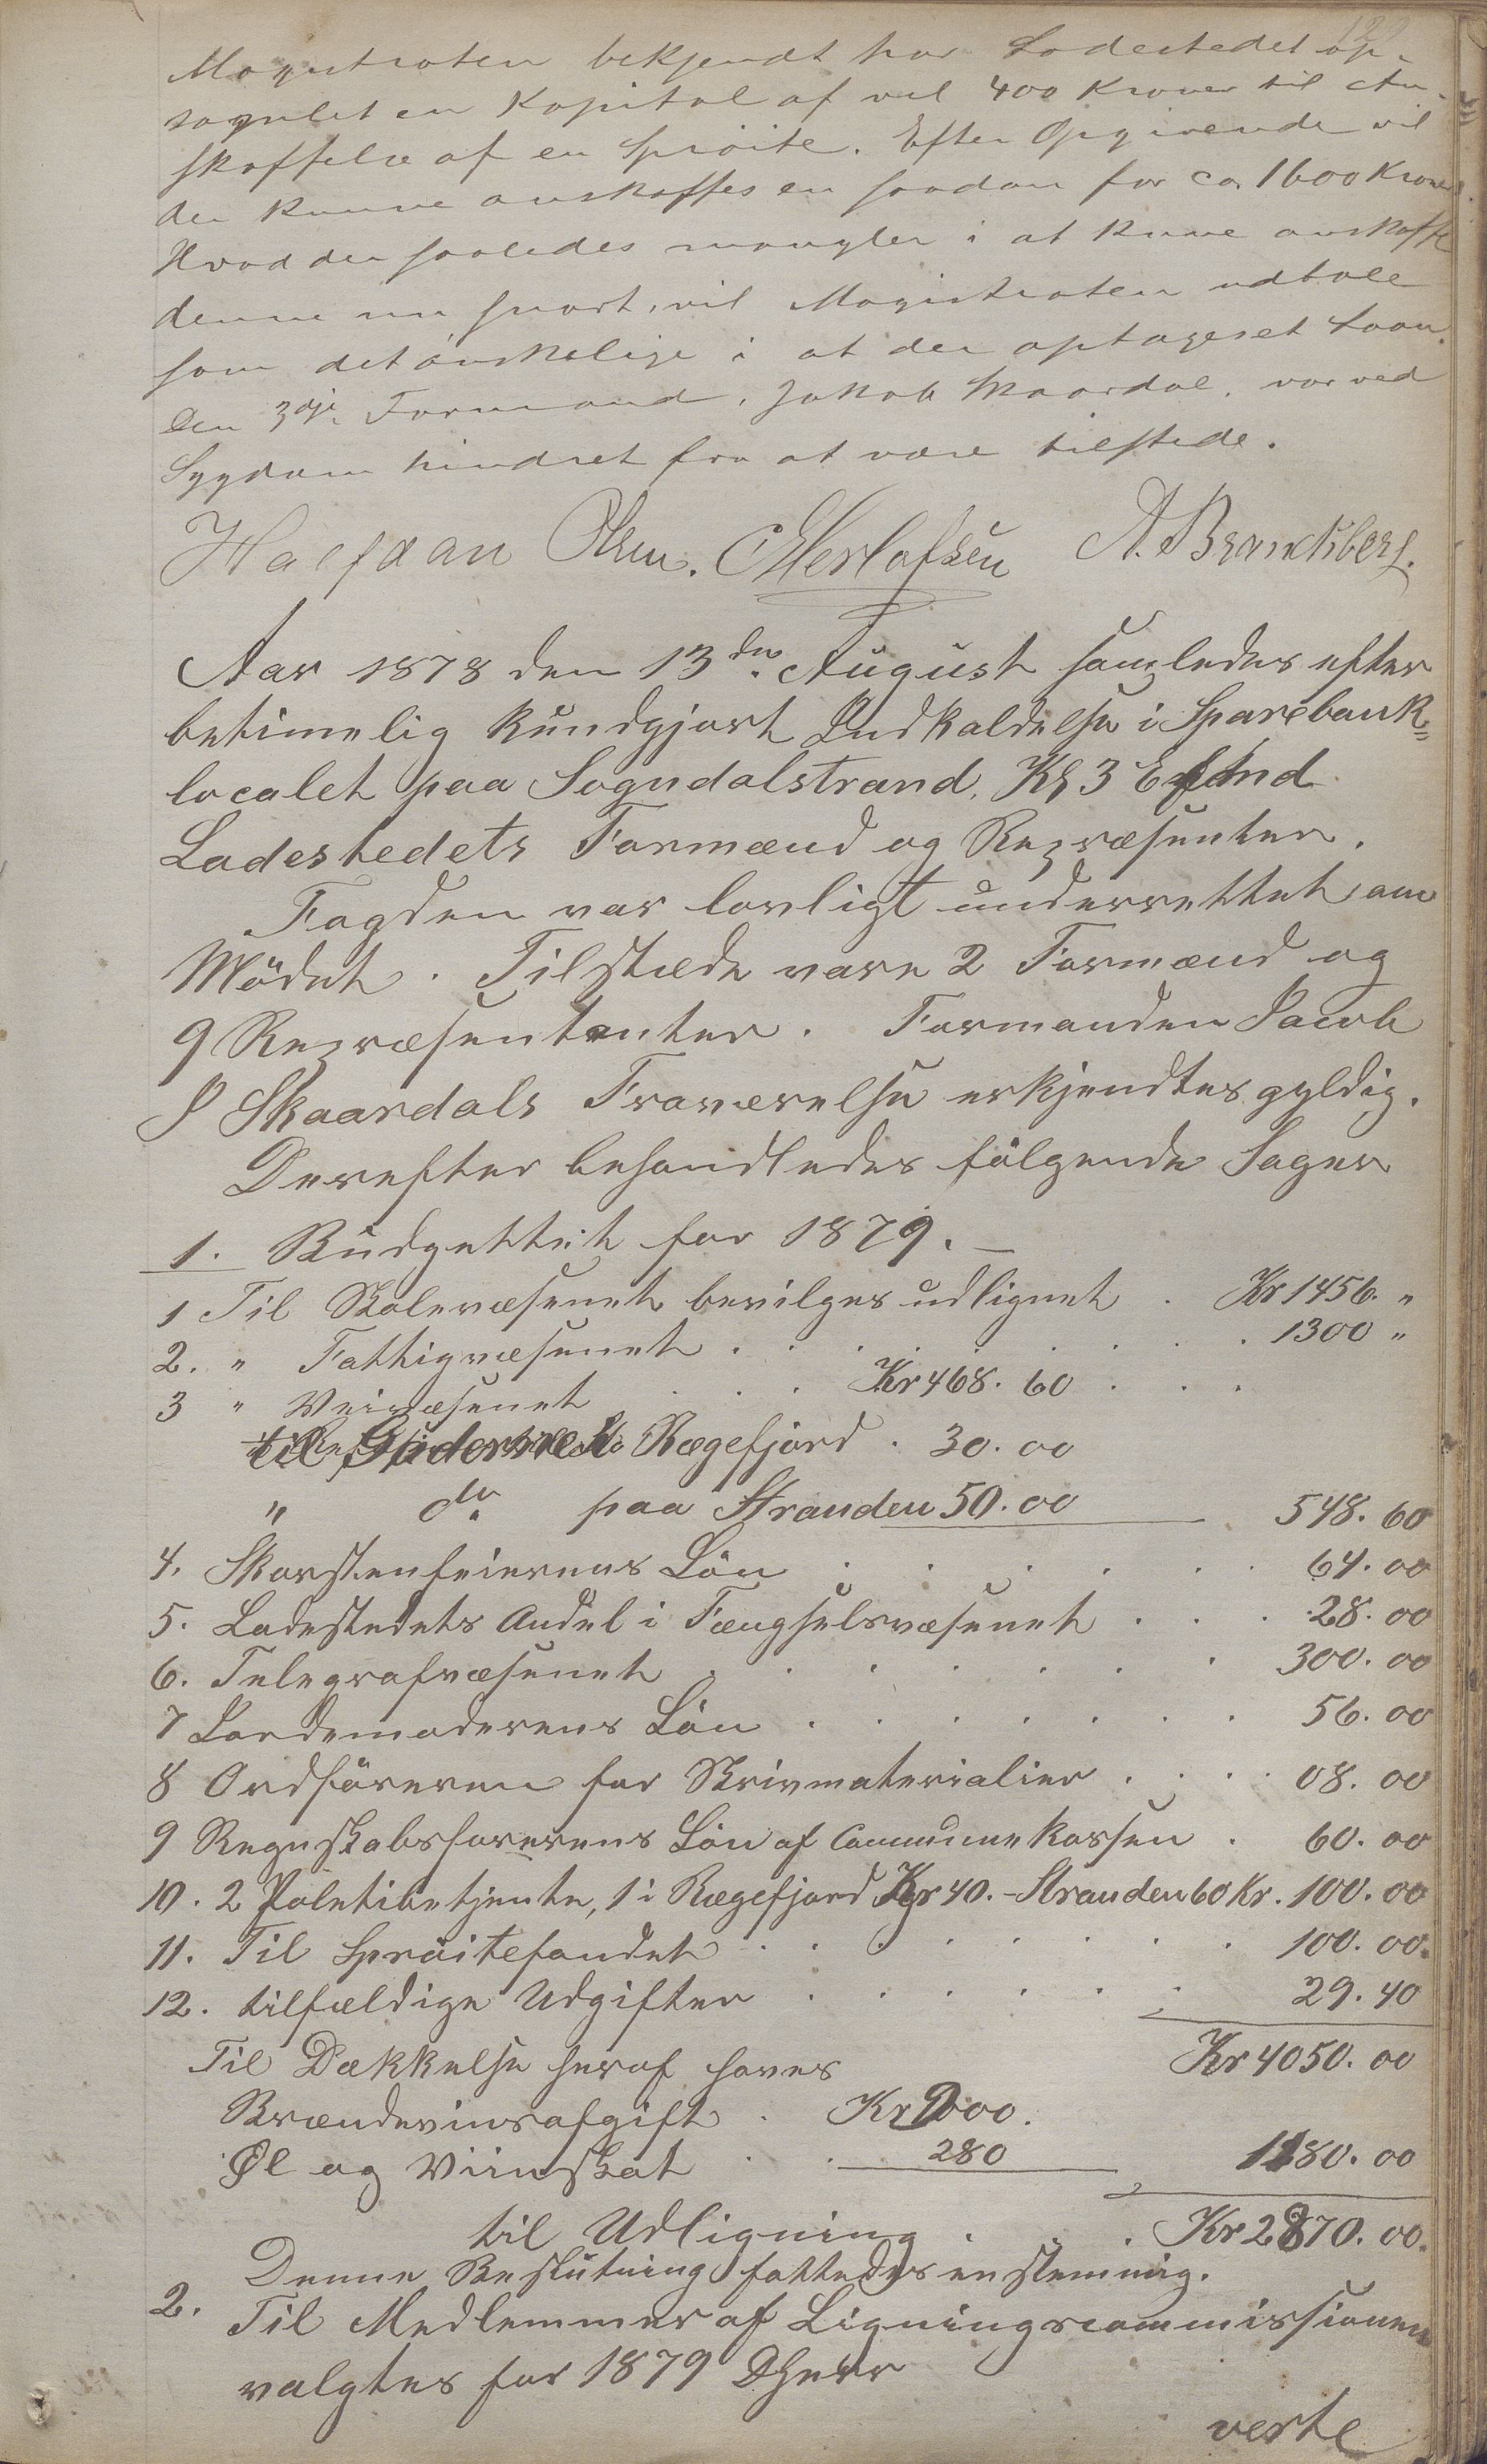 129
Magistraten bekjendt har Ladestedet op-
samlet en Kapital af vel 400 Kroner til An-
skaffelse af en Sprøite. Efter Opgivende vil
der kunne anskaffes en saadan for ca. 1600 Kroner
Hvad der saaledes mangler i at kunne anskaffe
denne nu snart, vil Magistraten udtale
som det ønskelige i at der optages et Laan.
Den 3dje Formand, Jakob Skaardal, var ved
Sygdom hindret fra at være tilstede.
Halfdan Olsen. Herlofsen A. Branchberg.
Aar 1878 den 13de August samledes efter
betimelig kundgjort Indkaldelse i Sparebank=
localet paa Sogndalstrand, Kl 3 Efmd
Ladestedets Formænd og Repræsenter.
Fogden var lovligt underrettet om
Mödet. Tilstede vare 2 Formænd og
9 Repræsentanter. Formanden Jacob
J Skaardals Fraværelse erkjendtes gyldig.
Derefter behandledes fölgende Sager
1. Budgettet for 1879.
1 Til Skolevæsenet bevilges udlignet . Kr 1456. "
2. " Fattigvæsenet . . . . . 1300 "
3 " Veivæsenet . . . Kr 468. 60 . . .
til Rægefjord . 30. 00
" do paa Stranden 50. 00 548. 60
4. Skorstenfeierens Lön . . . . . 64. 00
5. Ladestedets Andel i Fængselsvæsenet . . . 28. 00
6. Telegrafvæsenet . . . . . . 300. 00
7 Jordemoderens Lön . . . . . . . 56. 00
8 Ordföreren for Skrivmaterialier . . . . 08. 00
9 Regnskabsförerens Lön af Communekassen . 60. 00
10. 2 Poletibetjente, 1 i Rægefjord Kr 40. - Stranden 60 Kr. 100. 00
11. Til Sprøitefondet . . . . . . . . 100. 00.
12. tilfældige Udgifter . . . . . . 29. 40
Til Dækkelse heraf haves Kr 4050. 00
Brændevinsafgift . Kr 900.
Øl og Viinskat . . 280 1180. 00
til Udligning . . . Kr 2870. 00.
Denne Beslutning fattedes enstemmig.
2. Til Medlemmer af Ligningscommissionen
valgtes for 1879 DHerr
verte